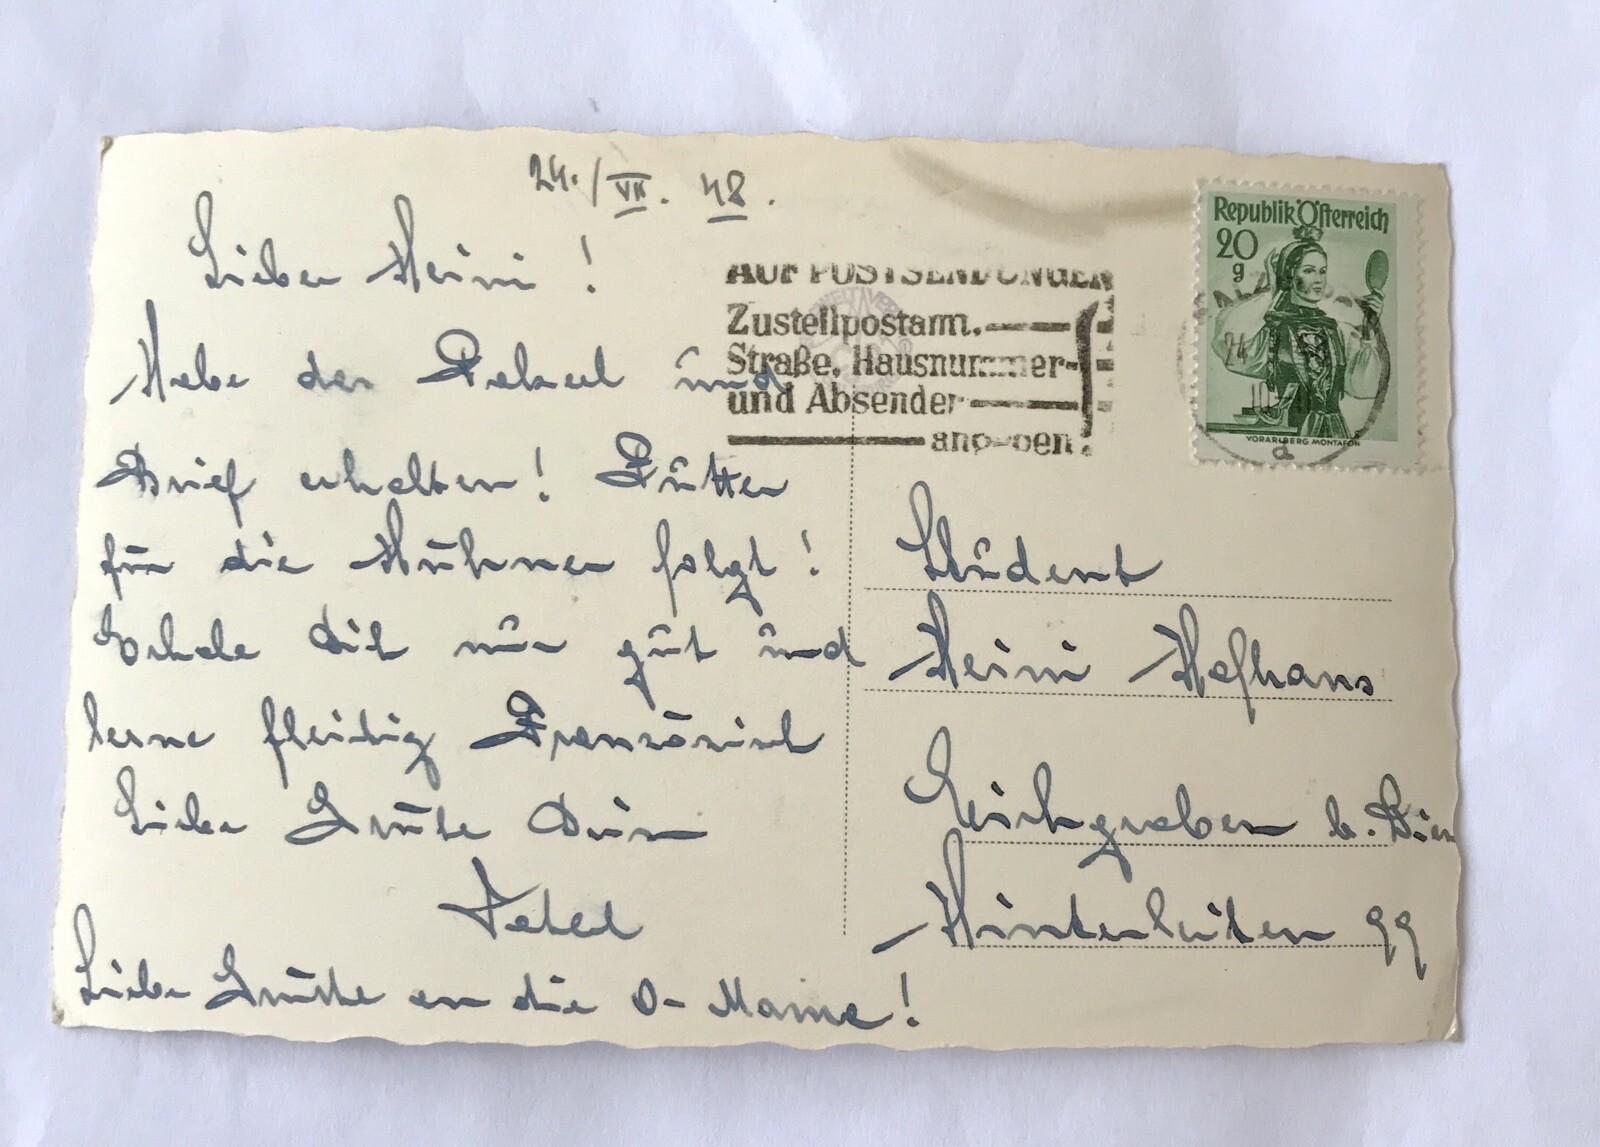 24./VII. 48.
Lieber Heini!
Habe das Paket und
Brief erhalten! Futter
für die Hühner folgt!
Erhole Dich nur gut und
lerne fleißig Französisch
Liebe Grüße Dein
Liebe Grüße an die O-Mama!
AUF POSTSENDUNGEN
Zustellpostamt,
Straße, Hausnummer
und Absender
angeben!
Republik Österreich
20
g
24
VORARLBERG MONTAFON
a
Student
Heini Hofhans
Eichgraben b. Wien
Hinterleiten 99